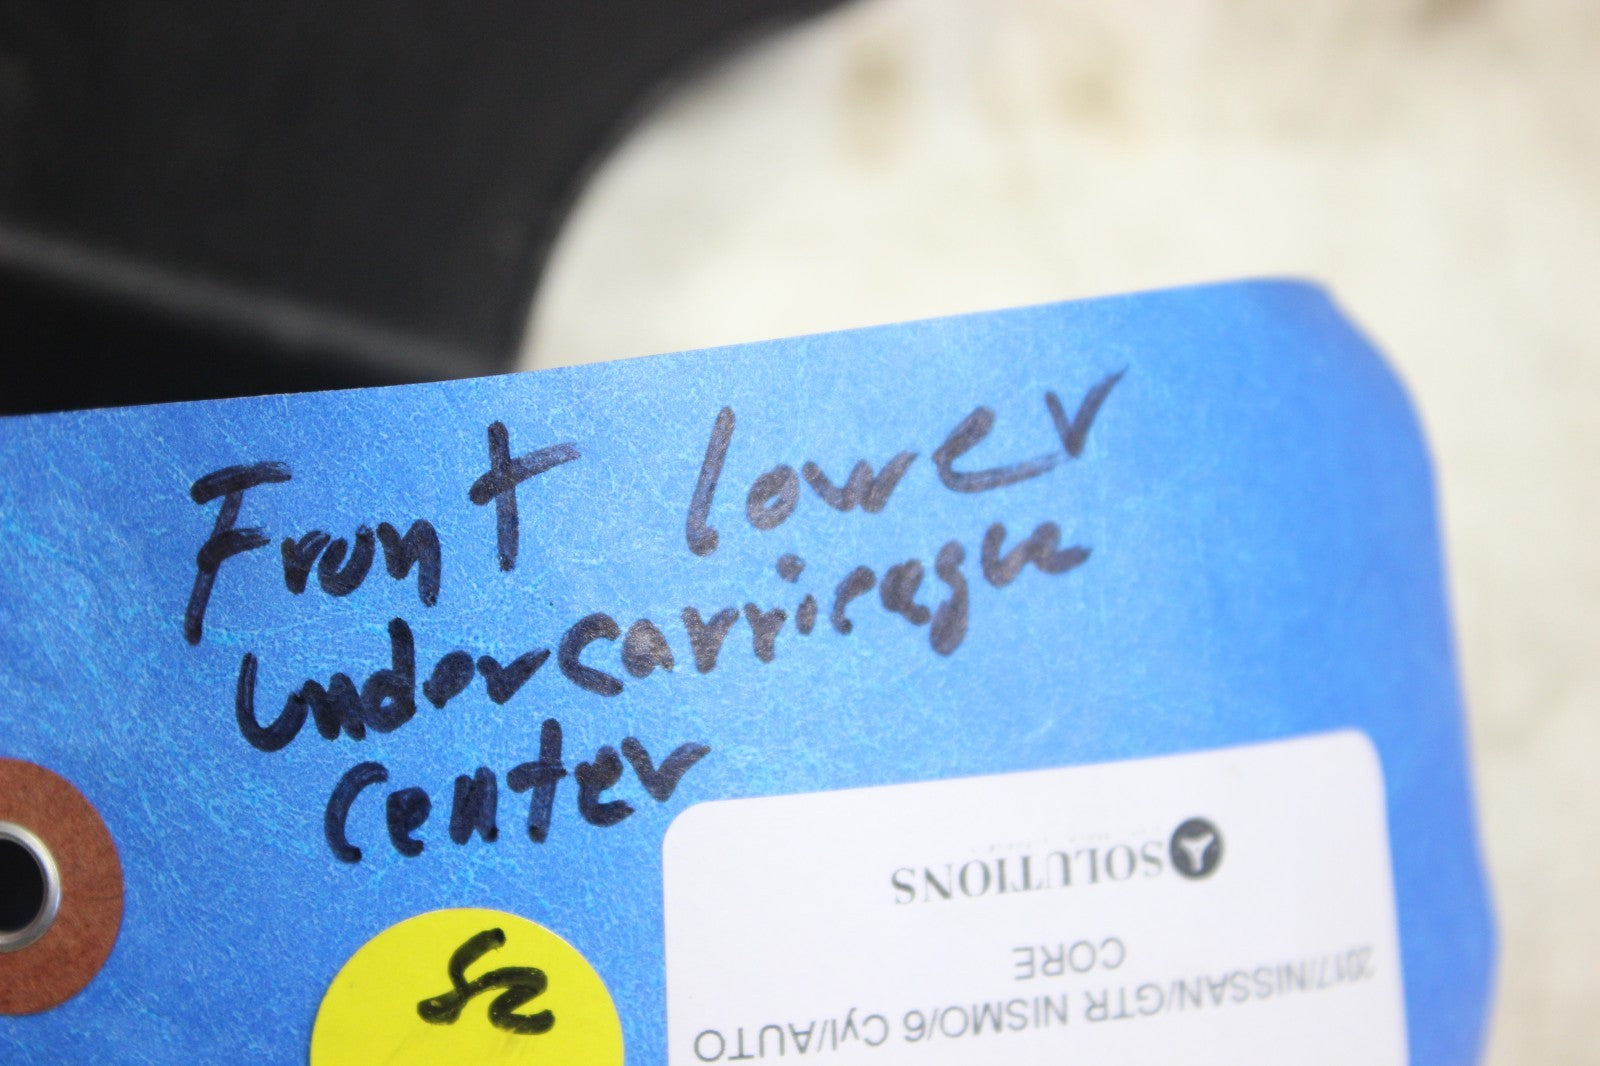 Front lower
undercarricague
center
SOLUTIONS
CORE
2017/NISSAN/GTR NISMO/6 Cyl/AUTO